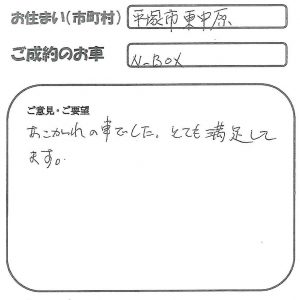 お住まい(市町村) 平塚市東中原
ご成約のお車 N-BOX
ご意見・ご要望
あこがれの車でした。とても満足して
ます。